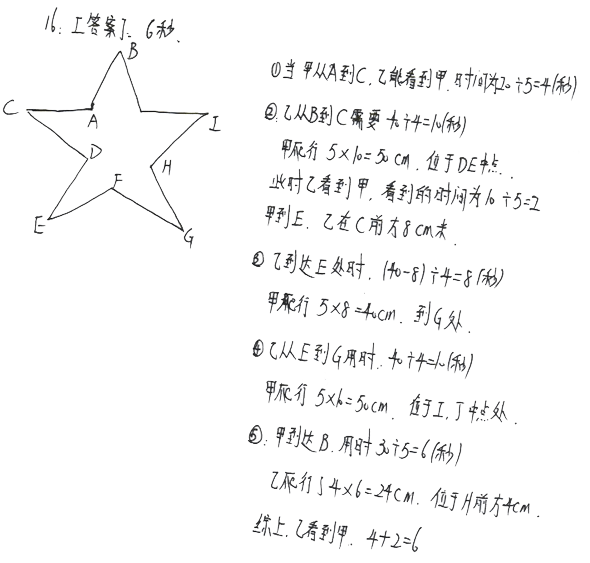 16. [答案]: 6秒.
B
C
A
I
D
H
F
E
G
①当甲从A到C,乙能看到甲.时间为20÷5=4(秒)
②乙从B到C需要 40÷4=10(秒)
甲爬行 5×10=50cm,位于DE中点.
此时乙看到甲,看到的时间为10÷5=2
甲到E,乙在C前方8cm末.
③乙到达E处时,(40-8)÷4=8(秒)
甲爬行 5×8=40cm.到G处.
④乙从E到G用时.40÷4=10(秒)
甲爬行 5×10=50cm.位于I,J中点处.
⑤.甲到达B.用时30÷5=6(秒)
乙爬行了4×6=24cm.位于H前方4cm.
综上,乙看到甲,4+2=6